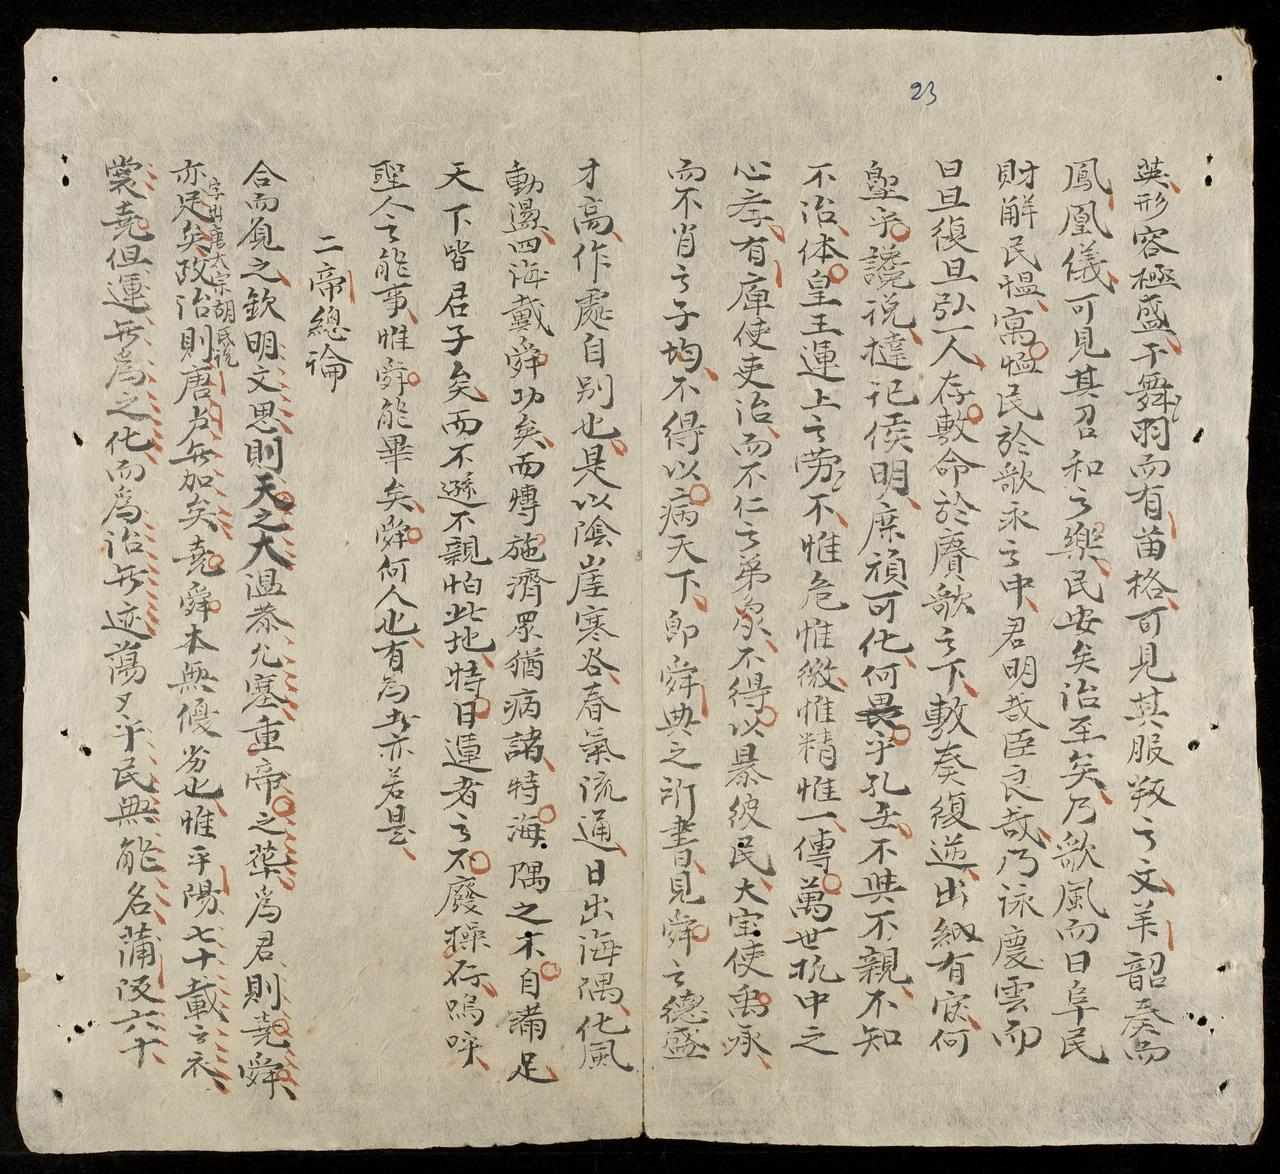 23
英形容極盛于舞羽而有苗格可見其服叛之文羊韶奏而
鳳凰儀可見其召和之樂民安矣治至矣乃歌風而曰阜民
財解民愠寓恤民於歌永之中君明哉臣良哉乃詠慶雲而
日旦復旦弘一人存敷命於賡歌之下敷奏復逆出納有寀何
聖乎讒説撻記侯明庶頑可化何畏乎孔壬不與不親不知
不治体皇王運上之劳不惟危惟微惟精惟一傳萬世执中之
心孝有庳使吏治而不仁之弟象不得以暴彼民大宝使禹承
而不肖之子均不得以病天下即舜典之所書見舜之德盛
才高作處自别也是以陰崖寒谷春氣流通日出海隅化風
動盪四海戴舜功矣而慱施濟眾猶病諸特海隅之木自滿足
天下皆君子矣而不遜不親怕此地特日運者之不廢操存嗚呼
聖人之能事惟舜能畢矣舜何人也有為者亦若是
二帝總論
合而覔之欽明文思則天之大温恭允塞重帝之華爲君則堯舜
亦足矣政治則唐虞無加矣堯舜本無優劣也惟平陽七十載之衣
字出唐太宗胡氏説
裳堯但運無爲之化而爲治無迹蕩夕乎民無能名蒲阪六十